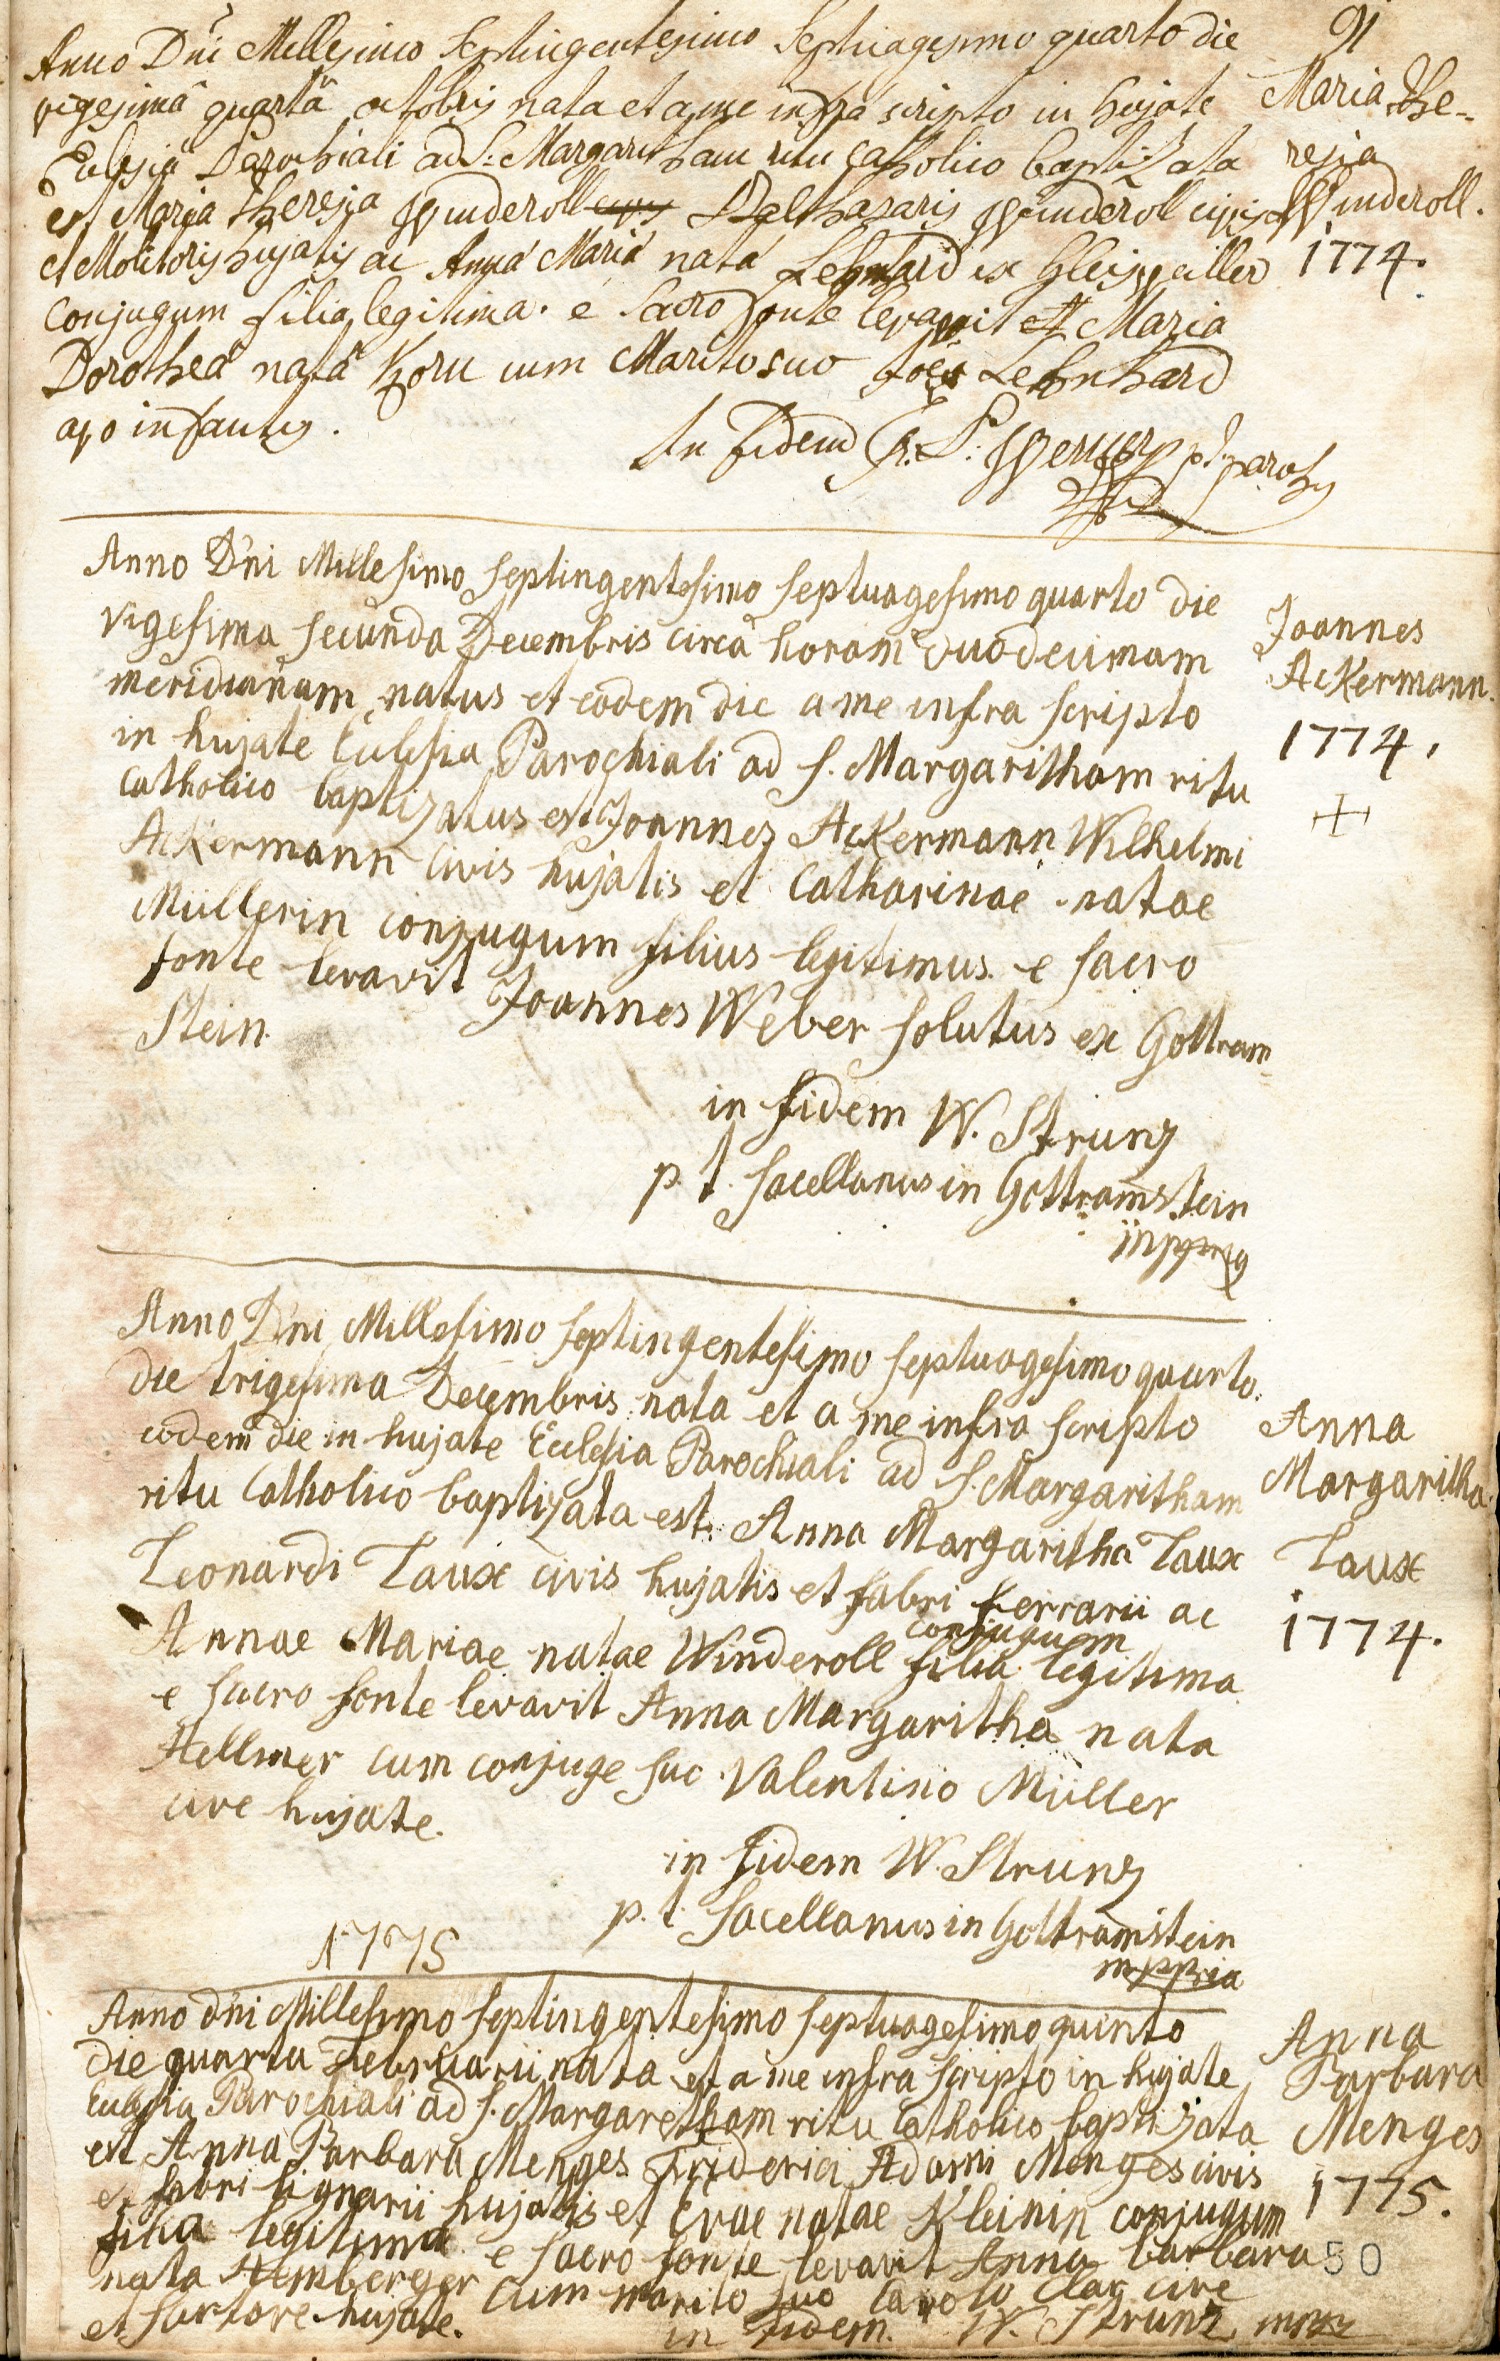 91
Anno Dni Millesimo Septingentesimo Septuagesimo quarto die
vigesimâ quartâ octobris nata et a me infra scripto in hujate
Ecclesiâ Parochiali ad S: Margaritham ritu catholico baptizata
est Maria Theresia Winderoll Balthasaris Winderoll civis
et Molitoris hujatis ac Annâ Mariâ natâ Lehnhard ex Gleisweiller
conjugum filia legitima. e sacro fonte levavit Maria
Dorotheâ natâ Korn cum Marito suo Joes Lehnhard
avo infantis.
In fidem Werner p.t. parochus
Maria The-
resia
Winderoll.
1774.
Anno D'ni Millesimo Septingentesimo Septuagesimo quarto die
vigesima secunda Decembris circa horam duodecimam
meridianam natus et eodem die a me infra scripto
in hujate Ecclesia Parochiali ad S. Margaritham ritu
Catholico baptizatus est Joannes Ackermann Wilhelmi
Ackermann civis hujatis et Catharinae natae
Müllerin conjugum filius legitimus. e sacro
fonte levavit Joannes Weber solutus ex Gottram-
Stein.
in fidem W. Strunz
p. t. sacellanus in Gottramstein
Joannes
Ackermann.
1774.
+
Anno D'ni Millesimo septingentesimo septuagesimo quarto
die trigesima Decembris nata et a me infra scripto
eodem die in hujate Ecclesia Parochiali ad S. Margaritham
ritu Catholico baptizata est. Anna Margaritha Taux
Leonardi Taux civis hujatis et fabri ferrarii ac
conjugum
Annae Mariae natae Winderoll filia legitima
e sacro fonte levavit Anna Margaritha nata
Hellmer cum conjuge suo Valentino Müller
cive hujate.
in fidem W. Strunz
p. t. Sacellanus in Gottramstein
mppria
Anna
Margaritha
Taux
1774.
1775
Anno d'ni Millesimo septingentesimo septuagesimo quinto
die quarta Februarii nata et a me infra scripto in hujate
Ecclesia Parochiali ad S. Margaretham ritu Catholico baptizata
est Anna Barbara Menges Friderici Adami Menges civis
et fabri lignarii hujatis et Evae natae Kleinin conjugum
filia legitima. e sacro fonte levavit Anna barbara
nata Hemberger cum marito suo Carolo Clar cive
et sartore hujate.
in fidem. W. Strunz mpp
Anna
Barbara
Menges
1775.
50